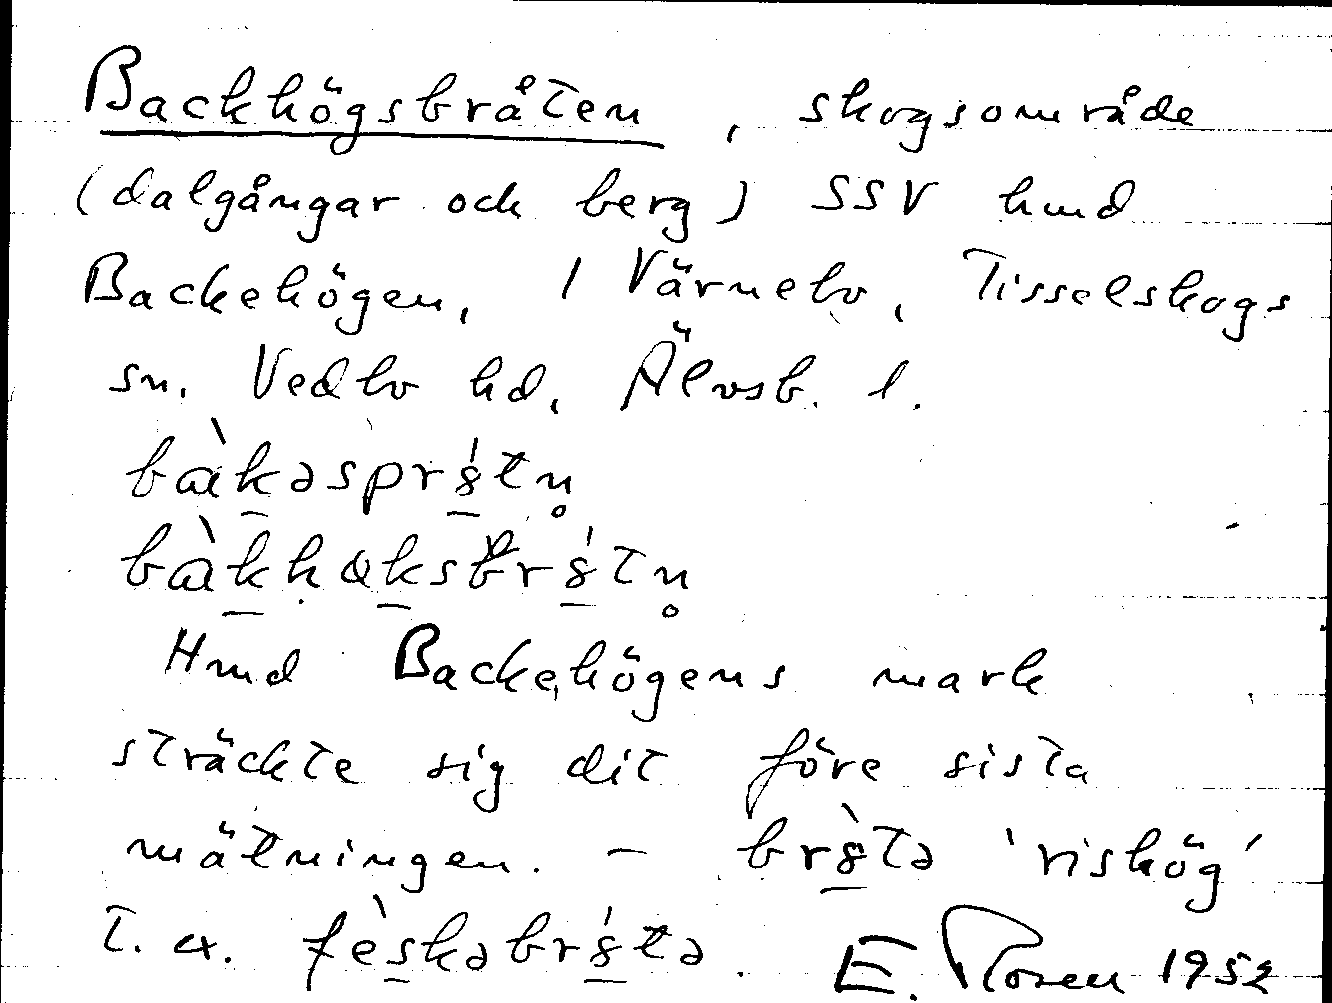 Backhögsbråten, skogsområde
(dalgångar och berg) SSV hmd
Backehögen, / Värnebo, Tisselskogs
sn. Vedbo hd, Älvsb. l.
bàkəspr8́tn̥
bàkhɑksbr8́tn̥
Hmd Backehögens mark
sträckte sig dit före sista
mätningen. – br8̀tə 'rishög'
T. ex. fèskəbr8́tə. E. Rosen 1952